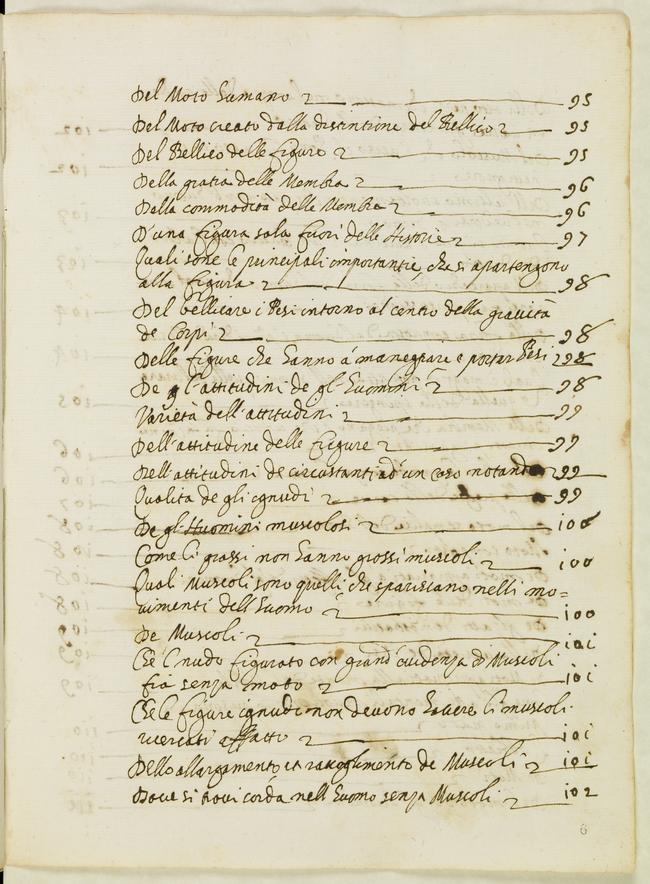 Del Moto humano 95
Del Moto creato dalla distintione del Bellico 95
Del Bellico delle figure 95
Della gratia delle Membra 96
Della commodità delle Membra 96
D'una figura sola fuori delle Historie 97
Quali sone le principali importantie, che si apartengono
alla figura 98
Del bellicare i Pesi intorno al centro della gravità
de Corpi 98
Delle figure che hanno à maneggiare e portar Pesi 98
De gl'attitudini de gl'huomini 98
Varietà dell'attitudini 99
Dell'attitudine delle figure 99
Dell'attitudini de circustanti ad un caso notando 99
Qualita de gli ignudi 99
De gl'Huomini muscolosi 100
Come li grassi non hanno grossi muscoli 100
Quali Muscoli sono quelli che spariscano nelli mo=
vimenti dell'huomo 100
De Muscoli 101
Che l nudo figurato con grand'evidenza di Muscoli
fia senza moto 101
Che le figure ignudi non devono havere li muscoli
ricercati affatto 101
Dello allargamento et raccoglimento de Muscoli 101
Dove si trovi corda nell'huomo senza Muscoli 102
6